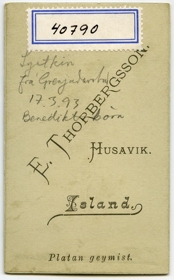 40790
frá Grenjaðarstað
17.3.93
Benedikts
E. THORBERGSSON.
HUSAVIK.
Island.
Platan geymist.